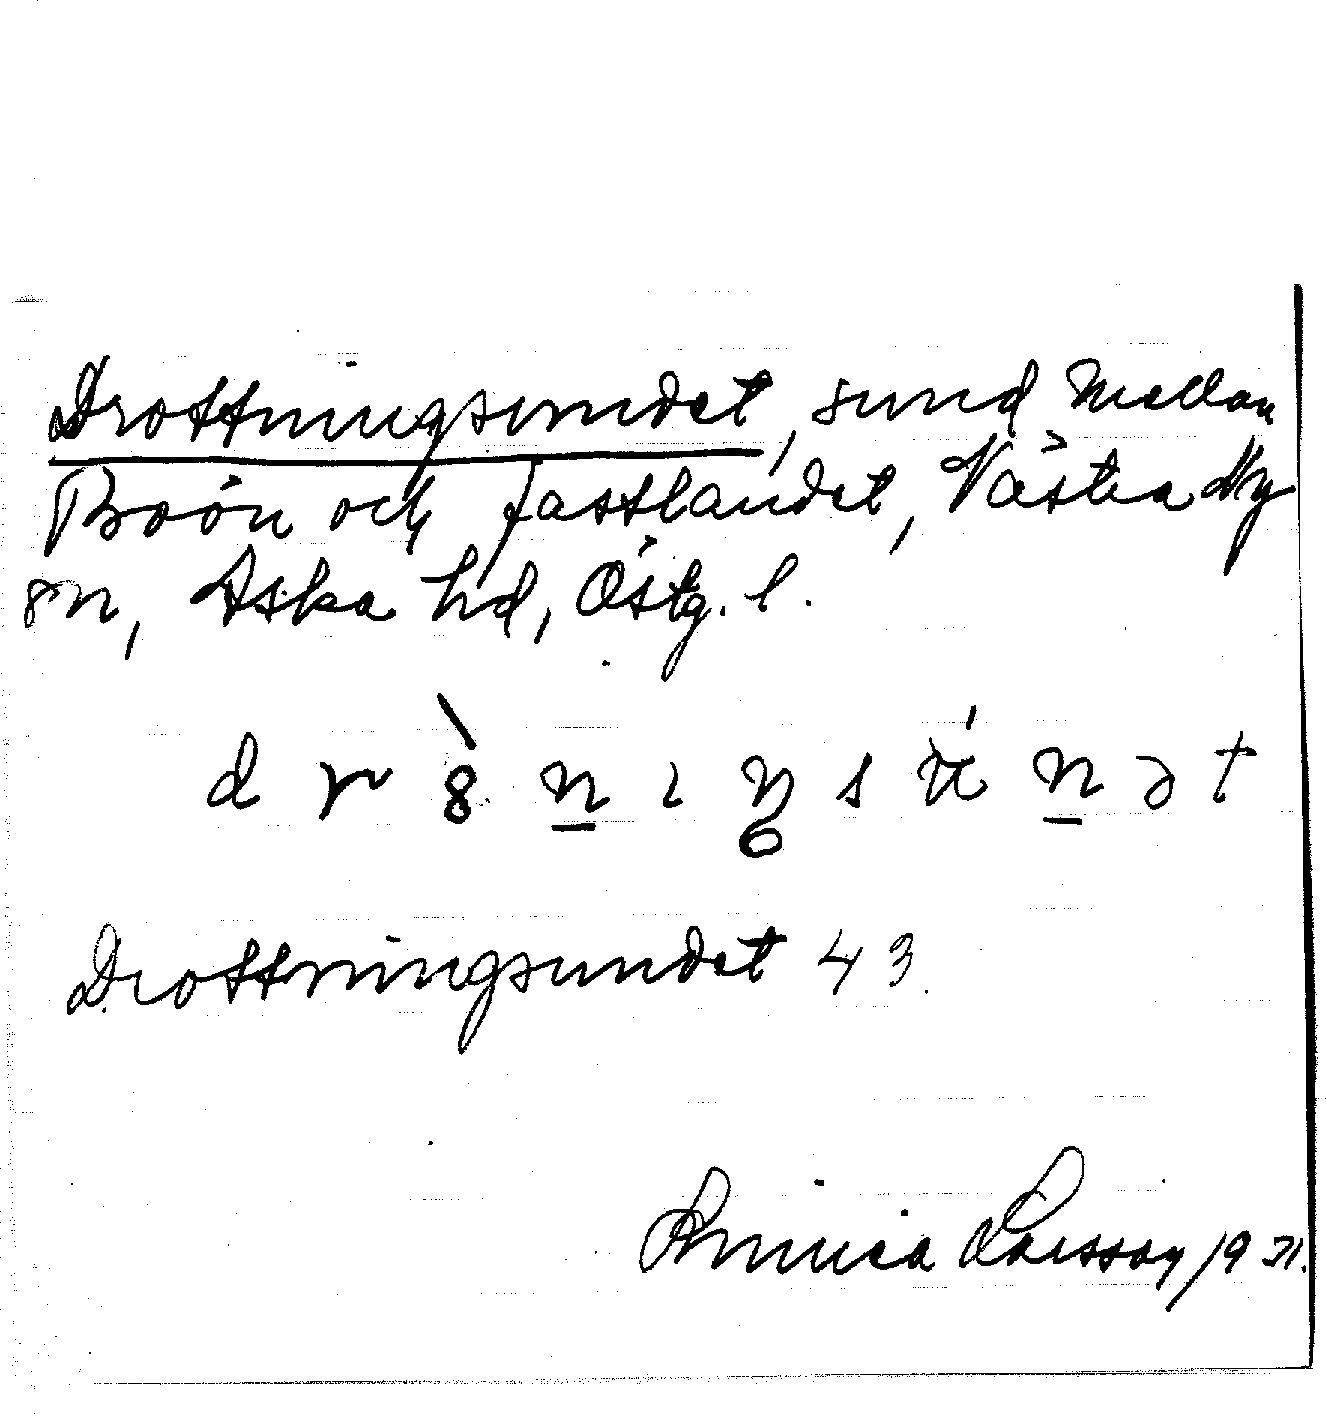 Drottningsundet, sund mellan
Boön och fastlandet, Västra Ny
sn, Aska hd, Östg. l.
Drottningsundet 43.
Annica Larsson 1931.